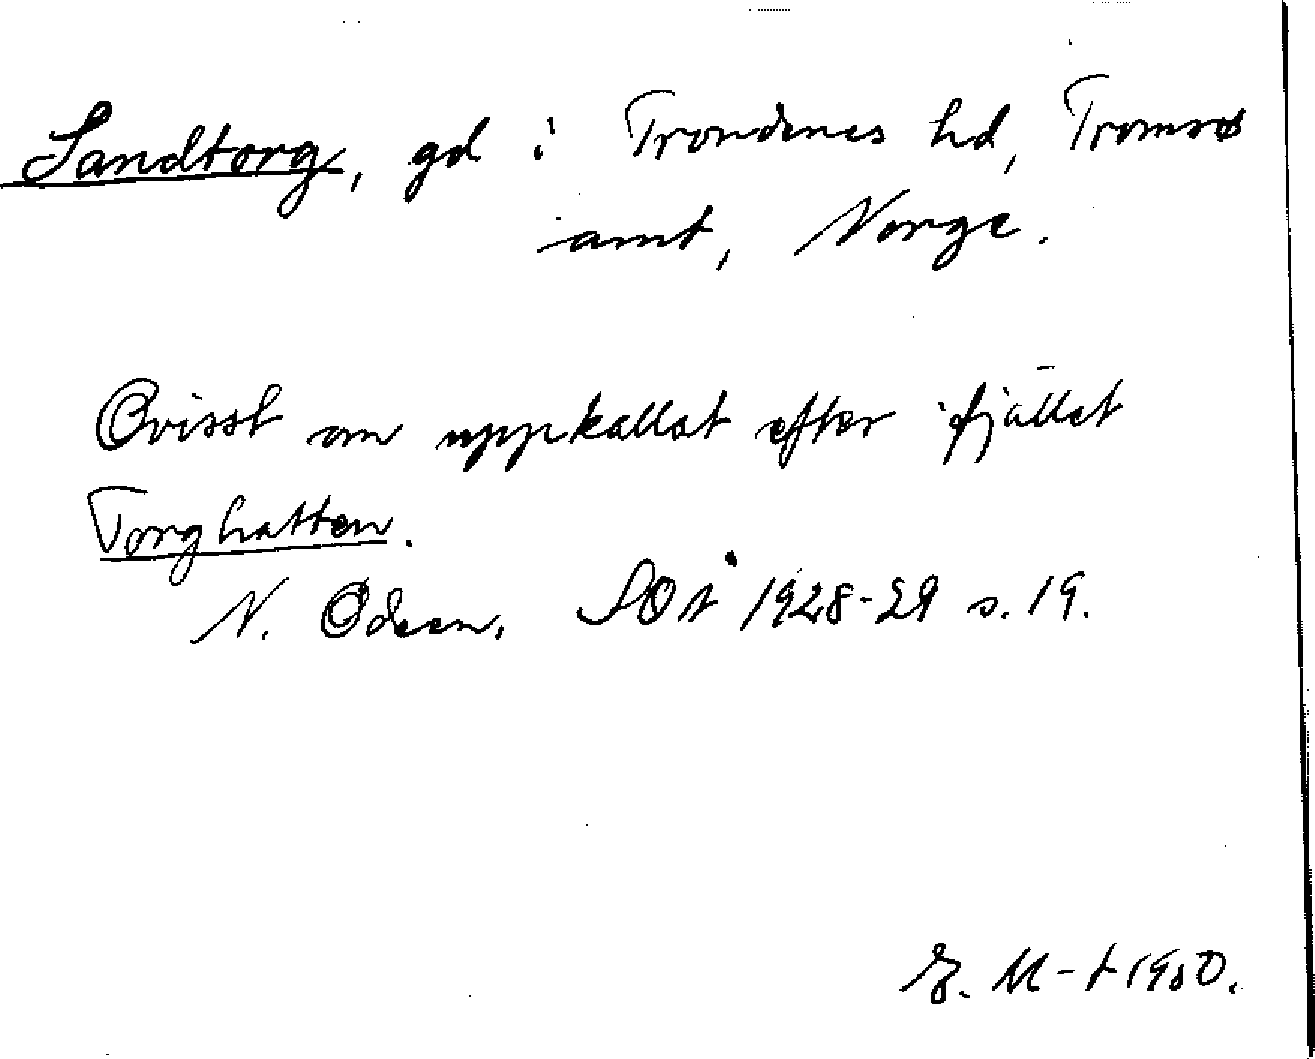 Sandtorg, gd i Trondenes hd, Tromsø
amt, Norge.
Ovisst om uppkallat efter fjället
Torghatten.
N. Odeen, SOÅ 1928-29 s. 19.
M-t 1950.